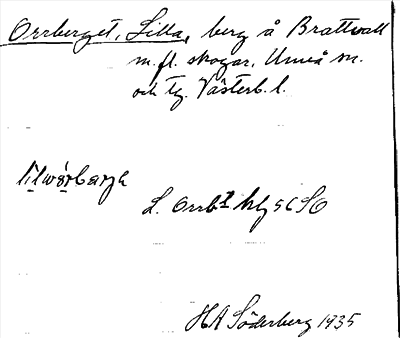 Orrberget, Lilla, berg å Brattvall
m.fl. skogar, Umeå sn.
och tg. Västerb. l.
L. Orrbt hbl 5C SO
HA Söderberg 1935